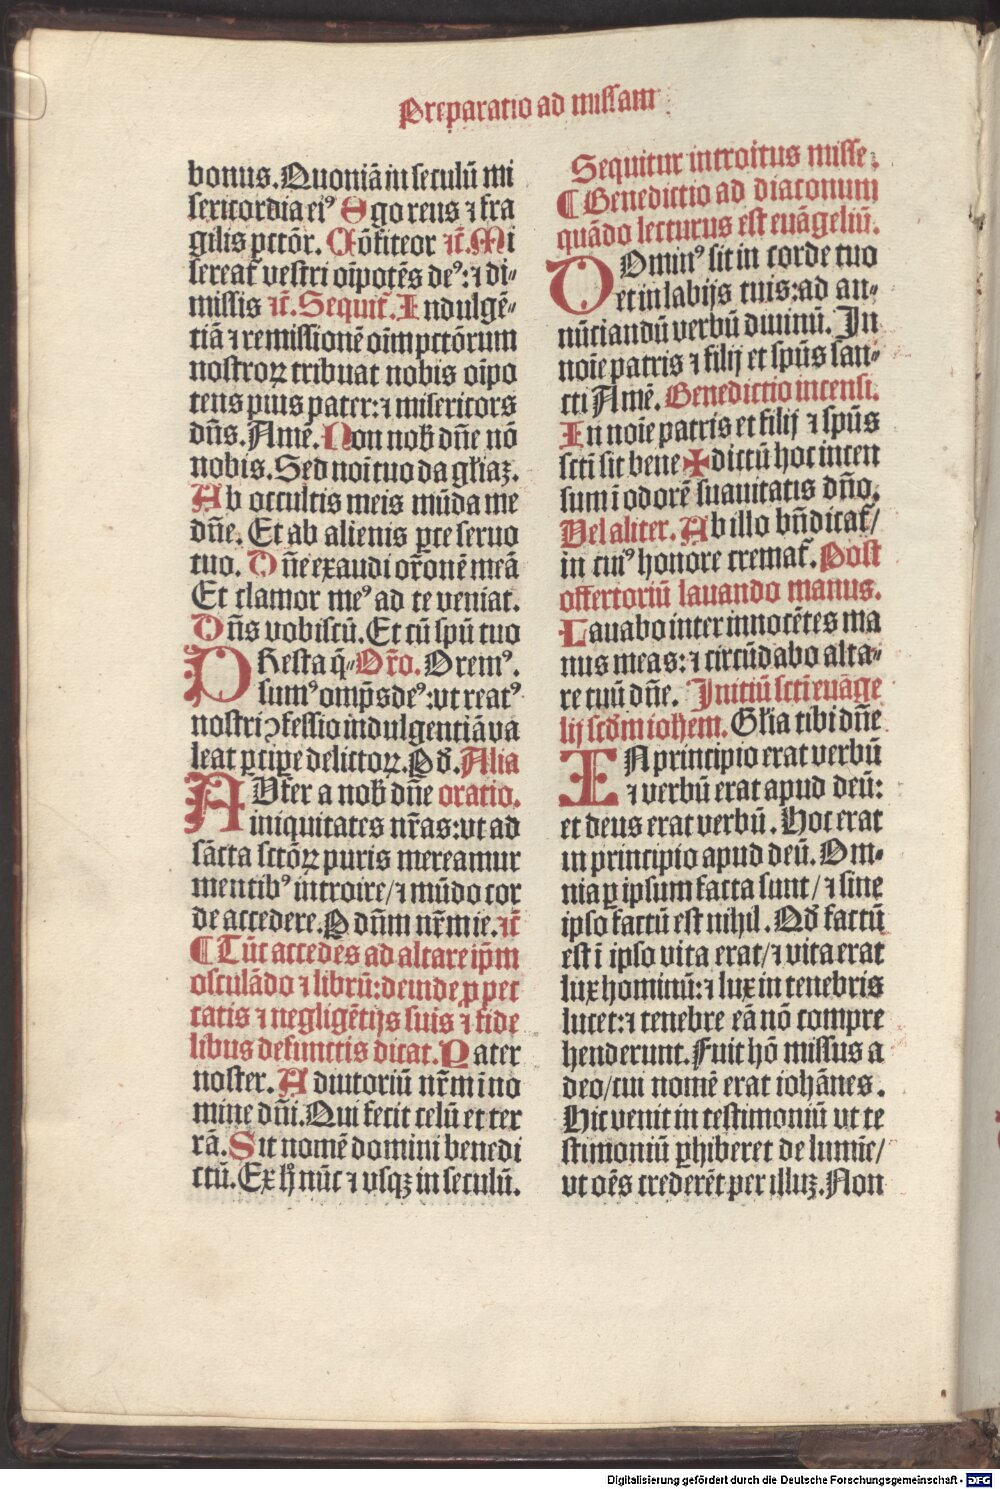 Preparatio ad missam
bonus. Quoniā in seculū mi
sericordia eiꝰ Ego reus ⁊ fra
gilis pctōr. Cōfiteor ⁊č. Mi
sereat̄ vestri oīpotēs deꝰ: ⁊ di⸗
missis ⁊č. Sequit̄. Indulgē⸗
tiā ⁊ remissionē oīm pctōrum
nostroꝝ tribuat nobis oīpo
tens pius pater: ⁊ misericors
dn̄s. Amē. Non nob̄ dn̄e nō
nobis. Sed noī tuo da gl̄iaꝫ.
Ab occultis meis mūda me
dn̄e. Et ab alienis ꝑce seruo
tuo. Dn̄e exaudi or̄onē meā
Et clamor meꝰ ad te veniat.
Dn̄s vobiscū. Et cū spū tuo
PResta q̄⸗ Or̄o. Oremꝰ.
sumꝰ omp̄s deꝰ: vt reatꝰ
nostri ꝯfessio indulgentiā va
leat ꝑcipe delictoꝝ. P d̄. Alia
AUfer a nob̄ dn̄e oratio.
iniquitates nr̄as: vt ad
sācta sctōꝝ puris mereamur
mentibꝰ introire/ ⁊ mūdo cor
de accedere. P dn̄m nr̄m ie. ⁊č
¶ Tūc accedes ad altare ip̄m
osculādo ⁊ librū: deinde ꝓ pec
catis ⁊ negligētijs suis ⁊ fide
libus defunctis dicat. Pater
noster. Adiutoriū nr̄m in no
mine dn̄i. Qui fecit celū et ter
rā. Sit nomē domini benedi
ctū. Ex h̄ nūc ⁊ vsqꝫ in seculū.
Sequitur introitus misse.
¶ Benedictio ad diaconum
quādo lecturus est euāgeliū.
DOminꝰ sit in corde tuo
et in labijs tuis: ad an⸗
nūciandū verbū diuinū. In
noīe patris ⁊ filij et spūs san⸗
cti Amē. Benedictio incensi.
In noīe patris et filij ⁊ spūs
scti sit bene✠dictū hoc incen
sum ī odorē suauitatis dn̄o.
Vel aliter. Ab illo bn̄dicat̄/
in cuiꝰ honore cremat̄. Post
offertoriū lauando manus.
Lauabo inter innocētes ma
nus meas: ⁊ circūdabo alta⸗
re tuū dn̄e. Initiū scti euāge
lij scd̄m iohem. Gl̄ia tibi dn̄e
IN principio erat verbū
⁊ verbū erat apud deū:
et deus erat verbū. Hoc erat
in principio apud deū. Om⸗
nia ꝑ ipsum facta sunt/ ⁊ sine
ipso factū est nihil. Qd̄ factū
est ī ipso vita erat/ ⁊ vita erat
lux hominū: ⁊ lux in tenebris
lucet: ⁊ tenebre eā nō compre
henderunt. Fuit hō missus a
deo/ cui nomē erat iohānes.
Hic venit in testimoniū vt te
stimoniū ꝑhiberet de lumīe/
vt oēs crederēt per illuꝫ. Non
Digitalisierung gefördert durch die Deutsche Forschungsgemeinschaft - DFG